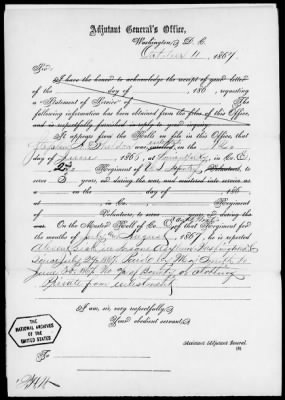 Adjutant General's Office,
Washington, D. C.
October 11, 1867
Sir:
I have the honor to acknowledge the receipt of your letter
of the day of 186 , requesting
a "Statement of Service" of The
following information has been obtained from the files of this Office,
and is respectfully furnished in reply to your inquiry:
It appears from the Rolls on file in this Office, that
was enlisted on the
day of June 1865, at in Co. E,
2nd Regiment of U.S. Infantry Volunteers, to
serve 3 years, or during the war, and mustered into service as
a on the day of 186 ,
at , in Co.
Regiment of Volunteers, to serve years, or during the
war. On the Muster Roll of Co. E of that Regiment for
the months of July & August, 1867, he is reported
Absent sick in Insane Asylum
since July 29, 1867. Paid by Maj. Smith to
June 30, 1867. of Bounty or clothing
Private from enlistment
I am, sir, very respectfully,
Your obedient servant,
Assistant Adjutant General.
To
THE NATIONAL
ARCHIVES OF THE
UNITED STATES